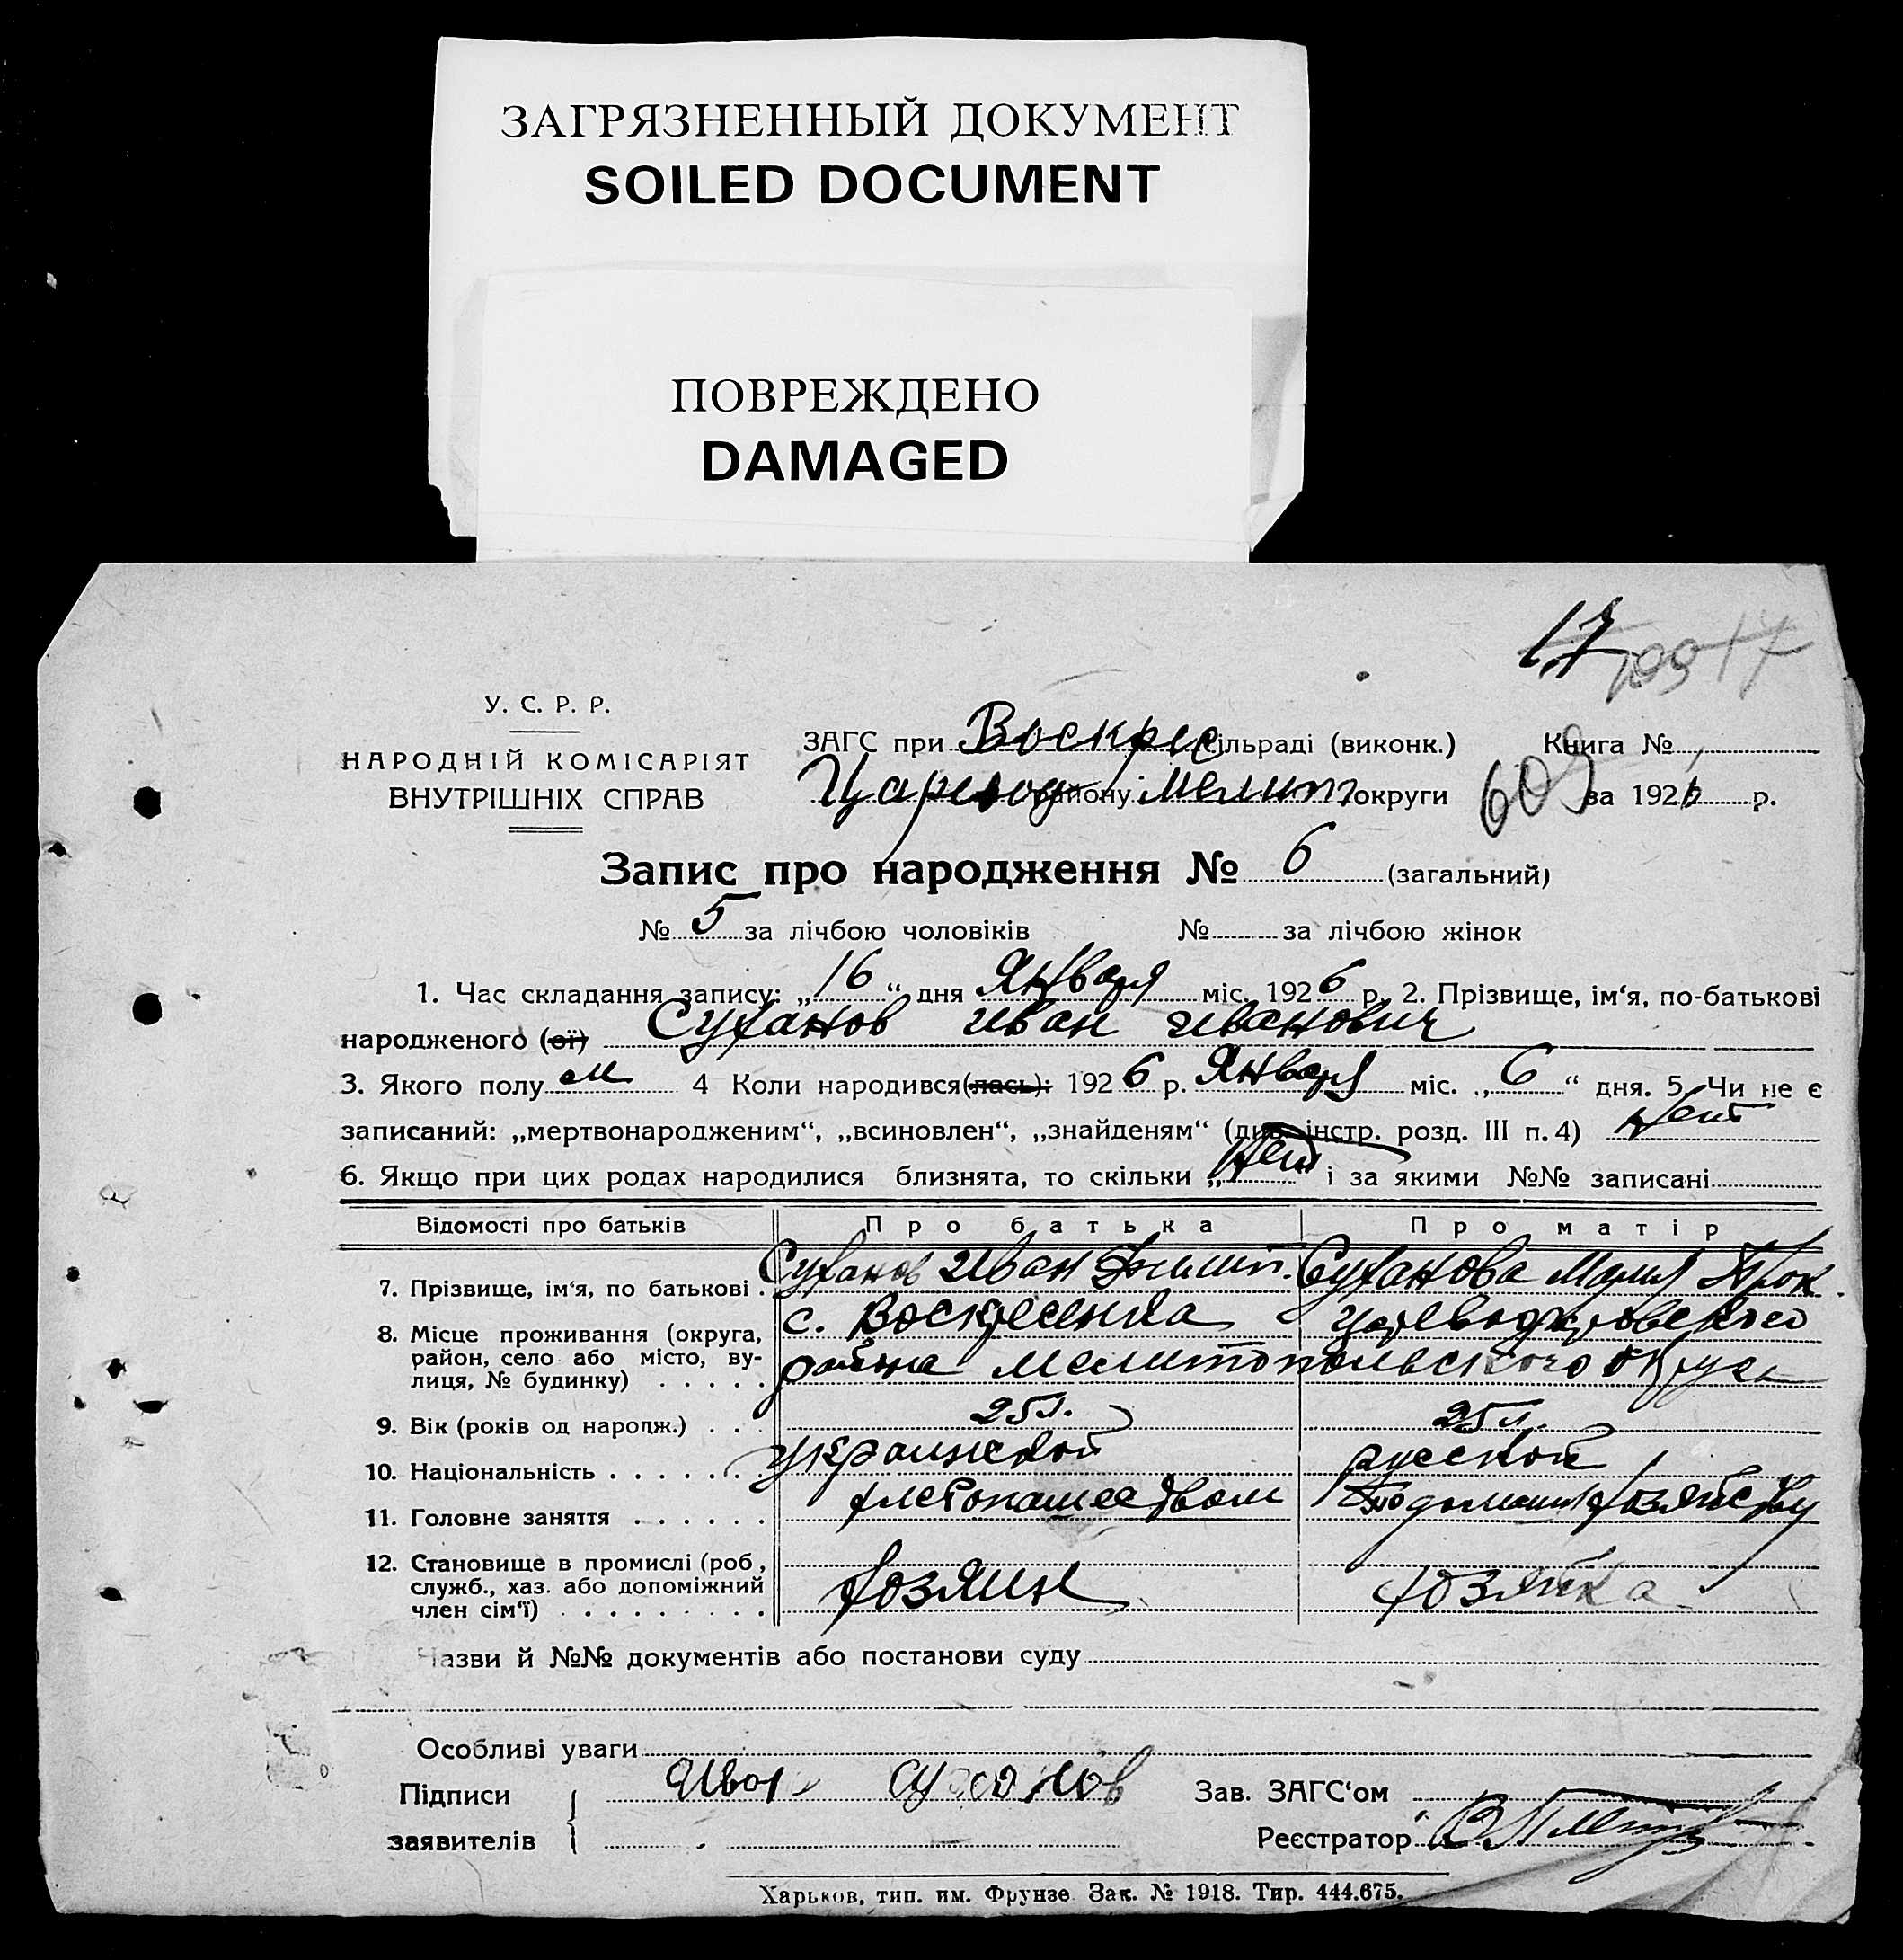 ЗАГРЯЗНЕННЫЙ ДОКУМЕНТ
SOILED DOCUMENT
ПОВРЕЖДЕНО
DAMAGED
17 17
У. С. Р. Р.
НАРОДНІЙ КОМІСАРІЯТ
ВНУТРІШНІХ СПРАВ
ЗАГС при Воскрес сільраді (виконк.) Книга №
Царевод району Мелит округи 609 за 1926 р.
Запис про народження № 6 (загальний)
№ 5 за лічбою чоловіків № за лічбою жінок
1. Час складання запису: „16“ дня Января міс. 1926 р. 2. Прізвище, ім‘я, по-батькові
народженого (ої) Суханов Иван Иванович
3. Якого полу м 4 Коли народився(лась): 1926 р. Января міс. „6“ дня. 5. Чи не є
записаний: „мертвонародженим“, „всиновлен“, „знайденям“ (див. інстр. розд. III п. 4) Нет
6. Якщо при цих родах народилися близнята, то скільки „Нет“ і за якими №№ записані
Відомості про батьків Про батька Про матір
7. Прізвище, ім‘я, по батькові . Суханов Иван Суханова Мария Прок.
8. Місце проживання (округа, с. Воскресенка Цареводаровского
район, село або місто, ву-
лиця, № будинку) . . . . . района Мелитопольского округа
9. Вік (років од народж.) . . . 25 л. 25 л.
10. Національність . . . . . . . украинской русской
11. Головне заняття . . . . . . хлебопашеством По домашн хозяйству
12. Становище в промислі (роб.,
служб., хаз. або допоміжний
член сім‘ї) . . . . . . . . . Хозяин Хозяйка
Назви й №№ документів або постанови суду
Особливі уваги
Підписи Иван Суханов Зав. ЗАГС‘ом
заявителів Реєстратор
Харьков, тип. им. Фрунзе. Зак. № 1918. Тир. 444.675.